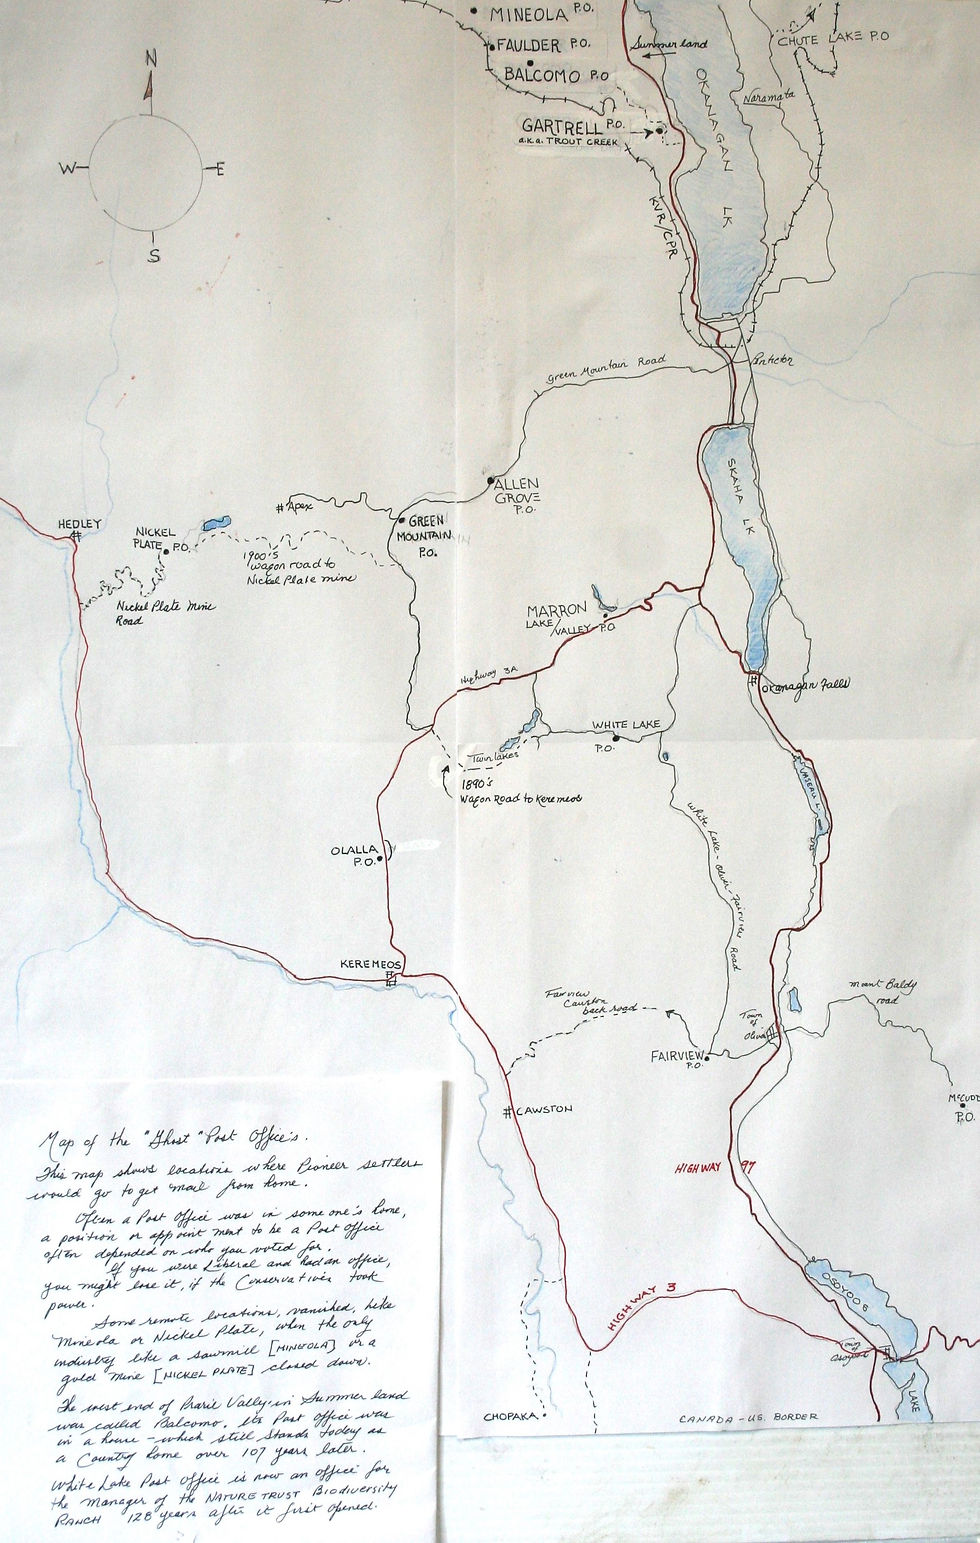 MINEOLA P.O.
FAULDER P.O.
BALCOMO P.O
Summerland
CHUTE LAKE P.O
OKANAGAN LK
Naramata
GARTRELL P.O.
a.k.a. TROUT CREEK
KVR/CPR
N
W
E
S
Green Mountain Road
Penticton
SKAHA LK
ALLEN
GROVE
P.O.
#Apex
GREEN
MOUNTAIN
P.O.
HEDLEY
NICKEL
PLATE P.O.
1900's
wagon road to
Nickel Plate mine
Nickel Plate Mine
Road
MARRON
LAKE/VALLEY P.O.
Highway 3A
Okanagan Falls
WHITE LAKE
P.O.
Twin lakes
1890's
Wagon Road to Keremeos
VASEAU L.
OLALLA
P.O.
White Lake - Oliver - Fairview Road
KEREMEOS
Fairview
Cawston
back road
Mount Baldy
road
Town
of
Oliver
FAIRVIEW
P.O.
# CAWSTON
P.O.
HIGHWAY 97
HIGHWAY 3
OSOYOOS
Town
of
Osoyoos
LAKE
CHOPAKA
CANADA - U.S. BORDER
Map of the "Ghost" Post Office's.
This map shows locations where Pioneer settlers
would go to get mail from home.
Often a Post Office was in some one's home,
a position or appointment to be a Post Office
often depended on who you voted for.
If you were Liberal and had an office,
you might lose it, if the Conservatives took
power.
Some remote locations, vanished, like
Mineola or Nickel Plate, when the only
industry like a sawmill [MINEOLA] or a
gold mine [NICKEL PLATE] closed down.
The west end of Prarie Vally in Summerland
was called Balcomo. Its Post Office was
in a house - which still stands today as
a Country home over 107 years later.
White Lake Post Office is now an office for
the manager of the NATURE TRUST Biodiversity
RANCH 128 years after it first opened.